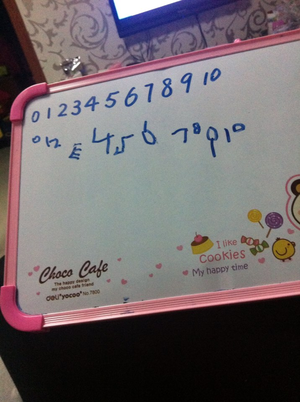 0 1 2 3 4 5 6 7 8 9 10
0 1 2 3 4 5 6 7 8 9 10
I like
Cookies
My happy time
Choco Cafe
The happy design,
my choco cafe friend
deli yocoo No.7802